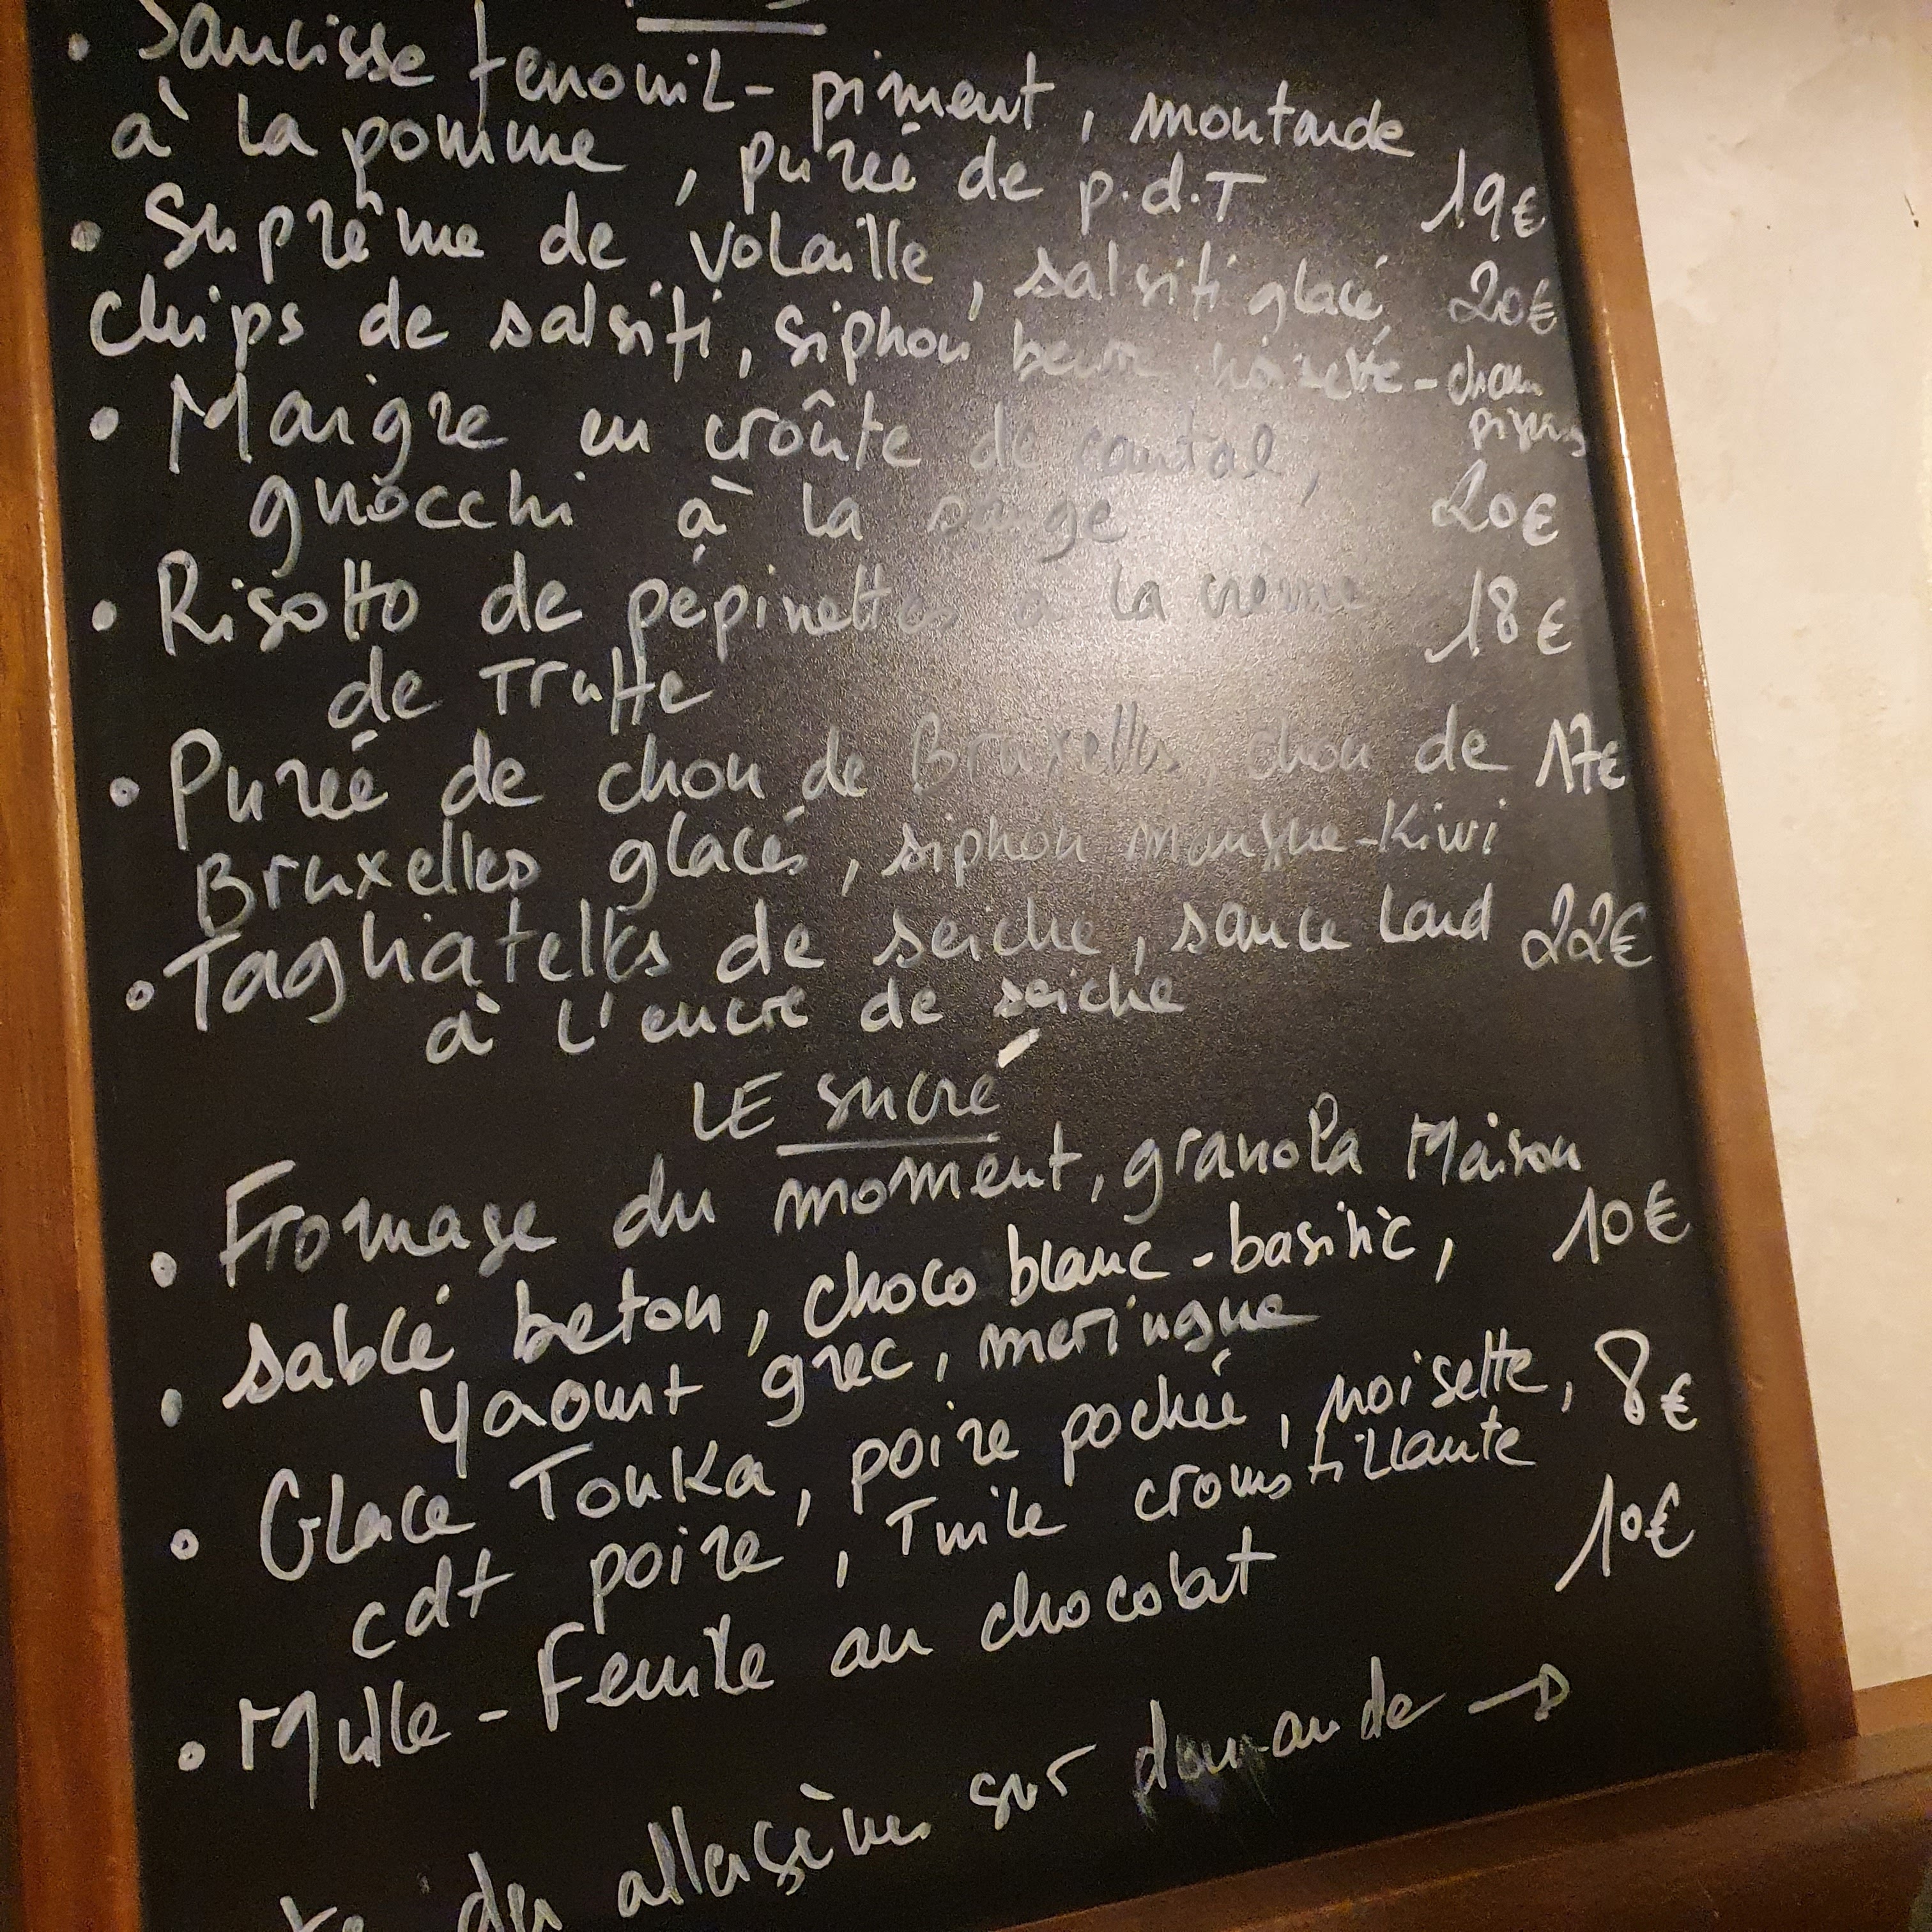 • Saucisse fenouil - piment, moutarde
à la pomme, purée de p.d.T 19€
• Suprême de volaille, salsifi glacé 20€
chips de salsifi, siphon beurre noisette - cham
pignons
• Maigre en croûte de cantal,
gnocchi à la sauge 20€
• Risotto de pépinettes à la crème 18€
de Truffe
• Purée de chou de Bruxelles, chou de 17€
Bruxelles glacés, siphon mangue-Kiwi
• Tagliatelles de seiche, sauce Lard 22€
à l'encre de seiche
LE sucré
• Fromage du moment, granola Maison 10€
• sablé breton, choco blanc - basilic,
yaourt grec, meringue 8€
• Glace Tonka, poire pochée, noisette,
cdt poire, Tuile croustillante 10€
• Mille - Feuille au chocolat
des allergènes sur demande →